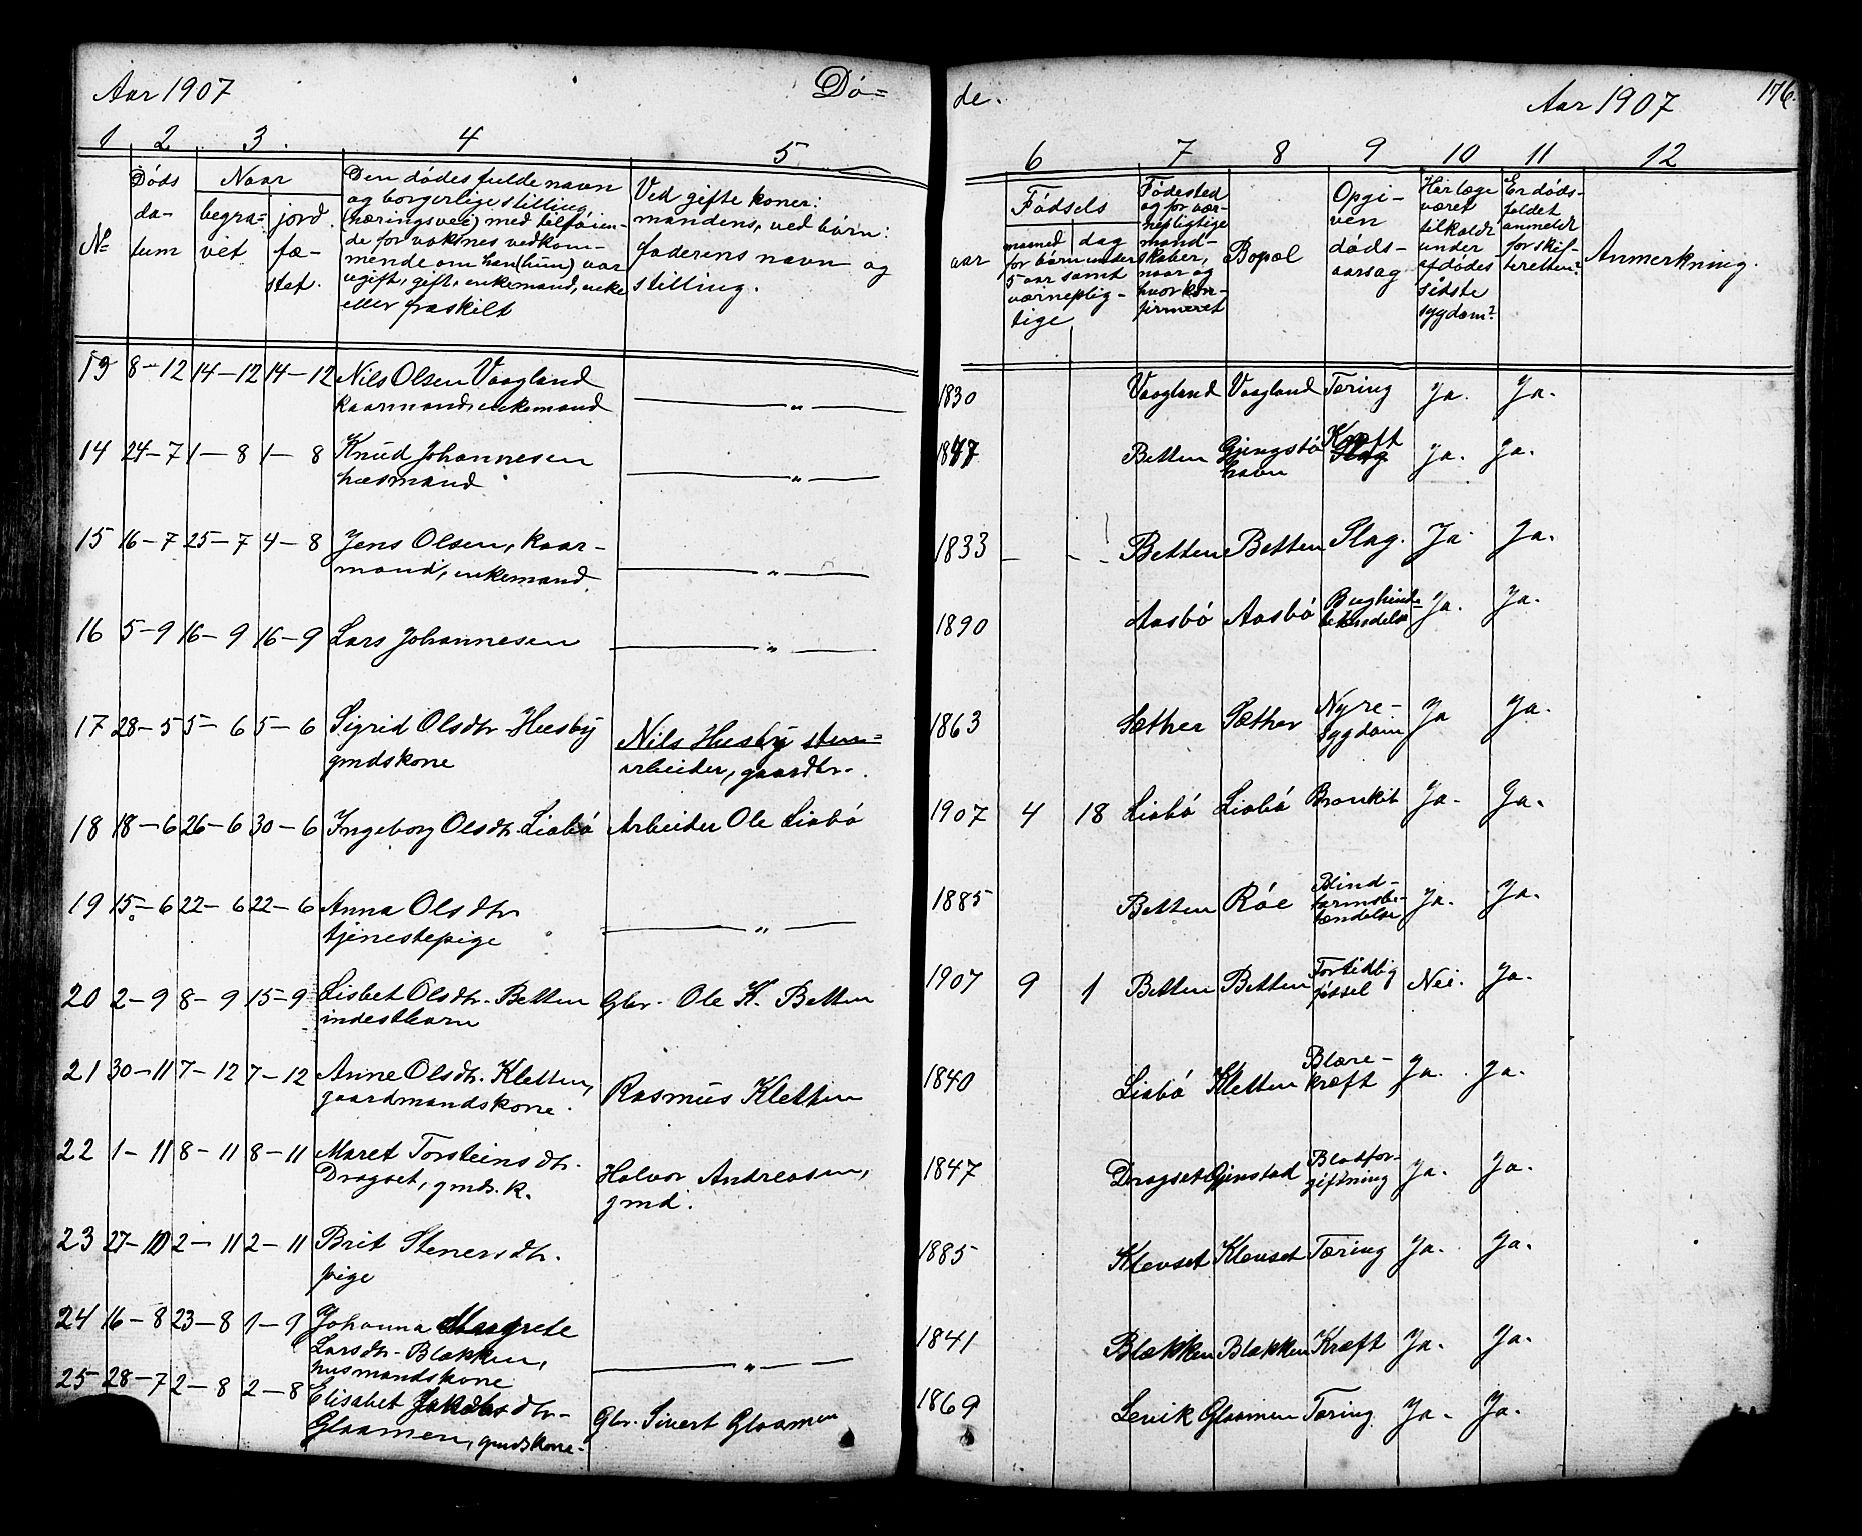 Aar 1907
Dø=
de.
Aar 1907
176.
1 2 3. 4 5
6 7 8 9 10 11 12
No
Døds
da-
tum
Naar
begra=
vet
jord.
fæ-
stet.
Den dødes fulde navn
og borgerlige stilling
(næringsvei) med tilføien-
de for voksnes vedkom-
mende om han (hun) var
ugift, gift, enkemand, enke
eller fraskilt
Ved gifte koner:
mandens, ved børn:
faderens navn og
stilling.
Fødsels
aar
maaned
dag
for børn under
5 aar samt
værneplig-
tige
Fødested
og for vær-
nepligtige
mand-
skaber,
naar og
hvor kon-
firmeret
Bopæl
Opgi-
ven
døds-
aarsag
Har læge
været
tilkaldt
under
afdødes
sidste
sygdom?
Er døds-
faldet
anmeldt
for skif-
teretten?
Anmerkning.
13 8-12 14-12 14-12 Nils Olsen Vaagland
kaarmand, enkemand — " —
1830 Vaagland Vaagland Tæring Ja. Ja.
14 24-7 1-8 1-8 Knud Johannesen
husmand — " —
1847 Betten Gjengstø
havn Kræft
Slag Ja. Ja.
15 16-7 25-7 4-8 Jens Olsen, kaar-
mand, enkemand — " —
1833 — - Betten Betten Slag. Ja. Ja.
16 5-9 16-9 16-9 Lars Johannesen — " —
1890 Aasbø Aasbø Bughinde-
betændelse Ja. Ja.
17 28-5 5-6 5-6 Sigrid Olsdtr. Husby
gmdskone
Nils Husby sten=
arbeider, gaardbr.
1863 Sæther Sæther Nyre-
sygdom Ja Ja.
18 18-6 26-6 30-6 Ingeborg Olsdtr. Liabø Arbeider Ole Liabø
1907 4 18 Liabø Liabø Bronkit Ja. Ja.
19 15-6 22-6 22-6 Anna Olsdtr.
tjenestepige — " —
1885 Betten Røe Blind-
tarmsbe-
tændelse Ja. Ja.
20 2-9 8-9 15-9 Lisbet Olsdtr. Betten Gbr. Ole K. Betten
1907 9 1 Betten Betten Fortidlig
fødsel Nei. Ja.
21 30-11 7-12 7-12 Anne Olsdtr. Kletten,
gaardmandskone.
Rasmus Kletten
1840 Liabø Kletten Blære-
kræft Ja. Ja.
22 1-11 8-11 8-11 Maret Torsteinsdtr.
Dragset, gmds.k.
Halvor Andreasen,
gmd.
1847 Dragset Gjinstad Blodfor-
giftning Ja. Ja.
23 27-10 2-11 2-11 Brit Stenersdtr.
pige
1885 Klevset Klevset Tæring Ja. Ja.
24 16-8 23-8 1-9 Johanna Margrete
Larsdtr. Blekken,
husmandskone — " —
1841 Blekken Blekken Kræft Ja. Ja.
25 28-7 2-8 2-8 Elisabet Jakobsdtr.
Glaamen, gmdskone. Gbr. Sivert Glaamen
1869 Levik Glaamen Tæring Ja. Ja.